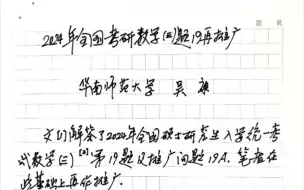 第 页
2024年全国考研数学(三)题19再推广
华南师范大学 吴
文[1]解答了2024年全国硕士研究生入学统一考
试数学(三)[2]第19题及推广问题19A. 笔者在
此基础上再作推广.